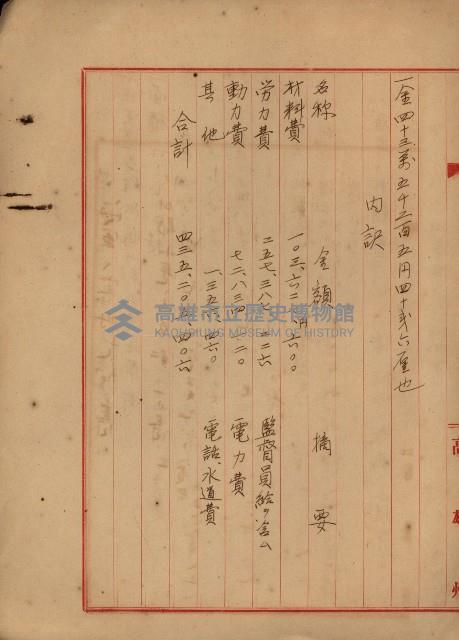 一金四十三萬五千二百五円四十戔六厘也
内訳
名称 金額 摘要
材料費 一〇三、六二八円六〇〇
労力費 二五七、三八七、二二六 監督員給ヲ含ム
動力費 七二、八三四、一二〇 電力費
其他 一、三五五、四六〇 電話、水道費
合計 四三五、二〇五、四〇六
高雄州
高雄市立歷史博物館
KAOHSIUNG MUSEUM OF HISTORY